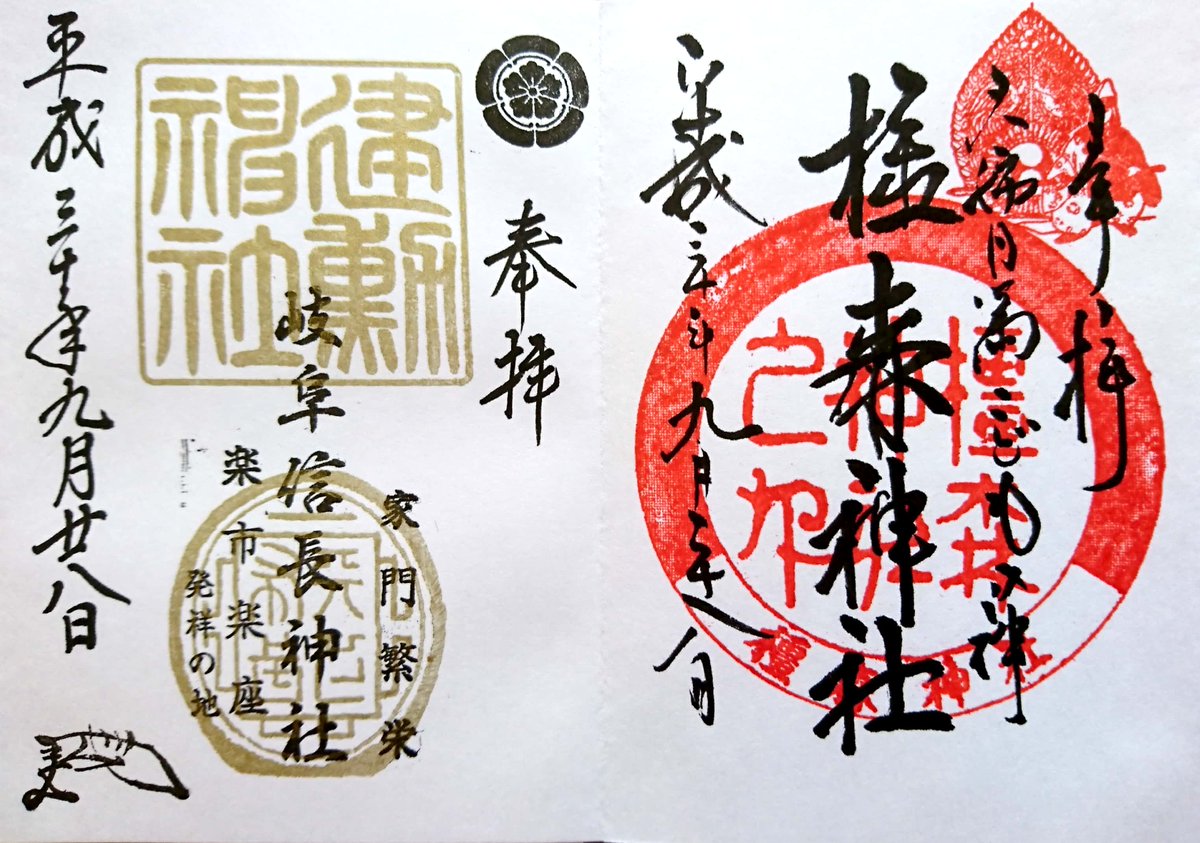 奉拝
橿森神社
橿森
神社
之印
橿森神社
平成三十年九月二十八日
奉拝
建勲
神社
岐阜信長神社
家門繁栄
楽市楽座
発祥の地
平成三十年九月廿八日